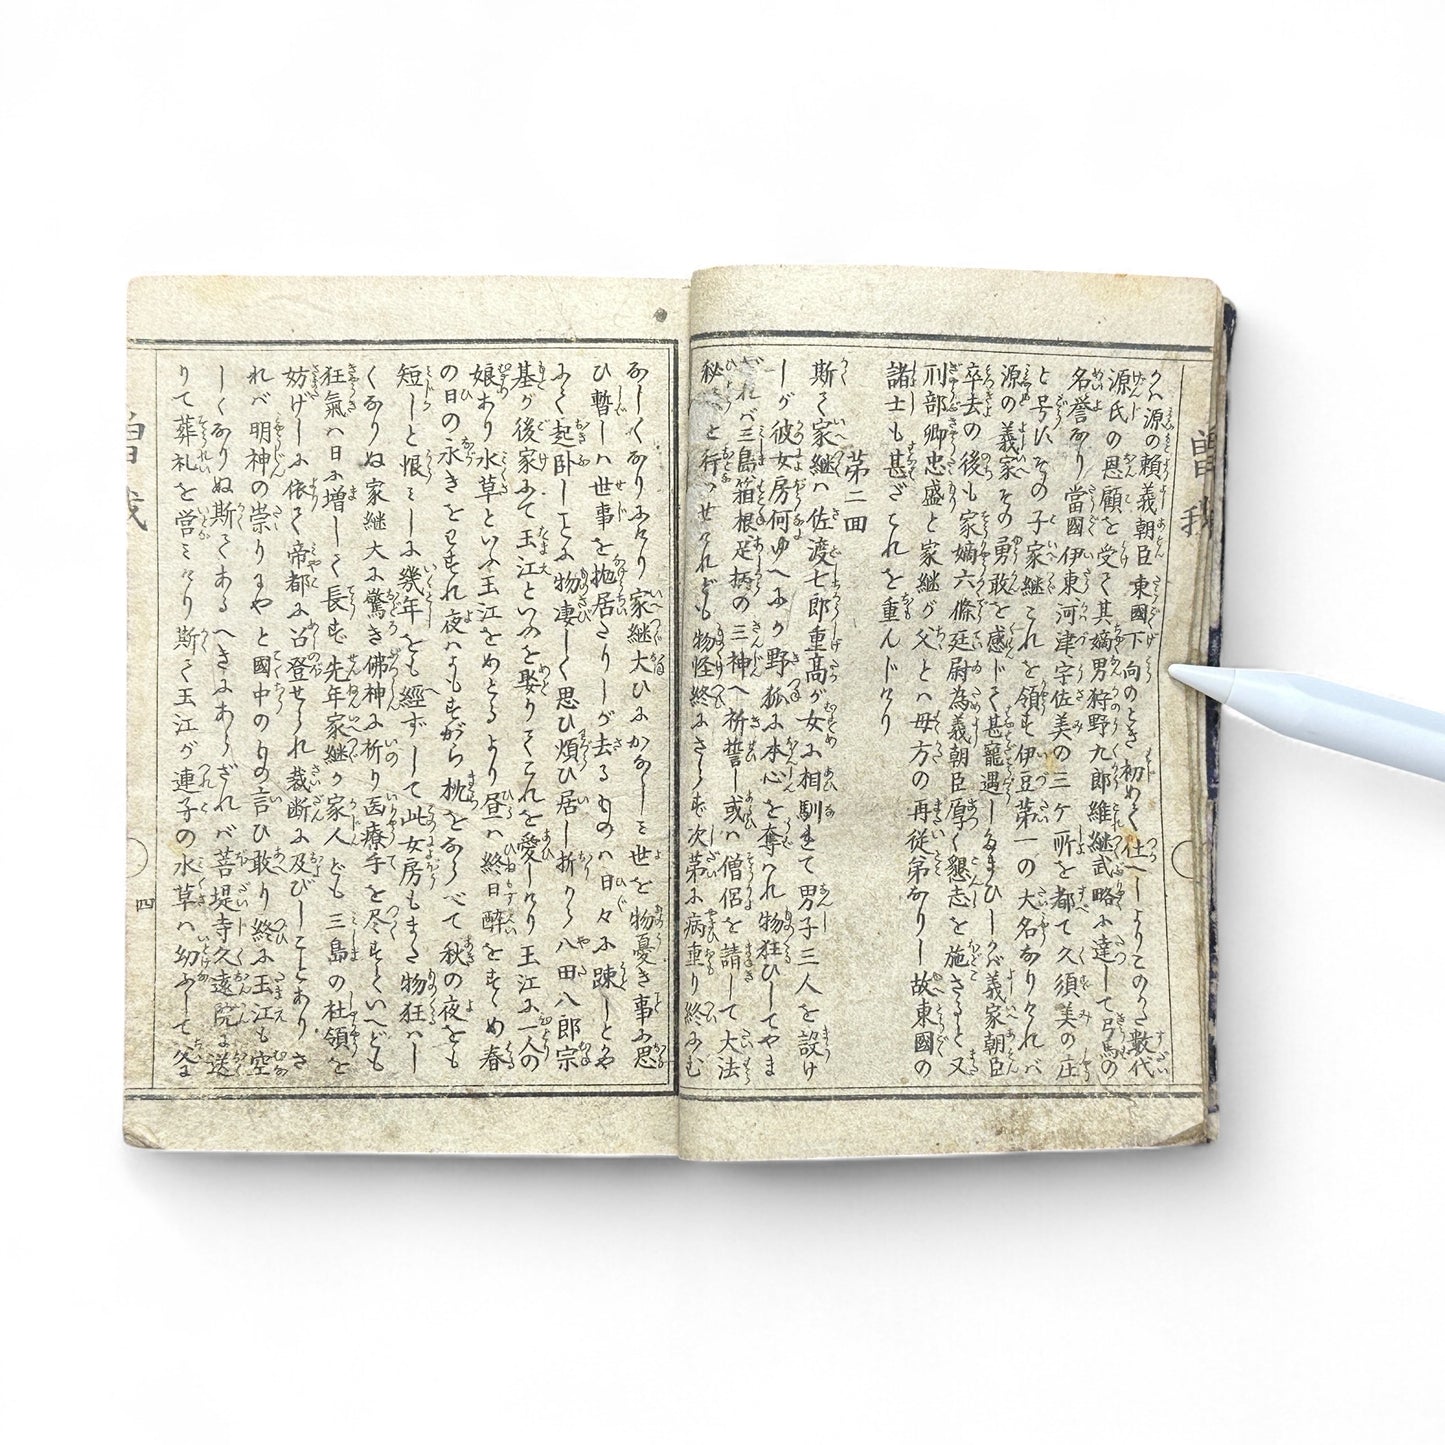 曽我
源の頼義朝臣東國下向のとき初めて仕へしよりこのかた数代
源氏の恩顧を受て其嫡男狩野九郎維継武略に達して弓馬の
名誉あり當國伊東河津宇佐美の三ケ所を都て久須美の庄
と号けその子家継これを領す伊豆第一の大名なりければ
源の義家その勇敢を感じて甚寵遇し給ひしが義家朝臣
卒去の後も家嫡六條廷尉為義朝臣厚く懇志を施さると又
刑部卿忠盛と家継が父とは母方の再従弟なりし故東國の
諸士も甚ざこれを重んじけり
第二回
斯て家継は佐渡七郎重髙が女に相馴れて男子三人を設け
しが彼女房何ゆへにか野狐に本心を奪はれ物狂ひしてやま
ざれば三島箱根足柄の三神へ祈誓し或は僧侶を請して大法
秘と行はせけれども物怪終にさらず次第に病重り終にむ
なしくなりにけり家継大ひにかなしみ世を物憂き事に思
ひ暫しは世事を抛居たりしが去るものは日々に踈しとや
ふく起卧しことに物凄しく思ひ煩ひ居し折から八田八郎宗
基が後家にて玉江といへるを娶りてこれを愛しけり玉江に一人の
娘あり水草といふ玉江をめとるより昼は終日酔をすゝめ春
の日の永きをわすれ夜はよもすがら枕をならべて秋の夜をも
短しと恨みしに幾年をも經ずして此女房もまた物狂はし
くなりぬ家継大に驚き佛神に祈り医療手を尽すといへども
狂氣は日に増して長ず先年家継が家人ども三島の社領を
妨げしに依て帝都に召登せられ裁断に及びしことありさ
れば明神の祟りにやと國中のもの言ひ敢り終に玉江も空
しくなりぬ斯てあるへきにあらざれば菩堤寺久遠院に送
りて葬礼を営みけり斯て玉江が連子の水草は幼ふして父に
四